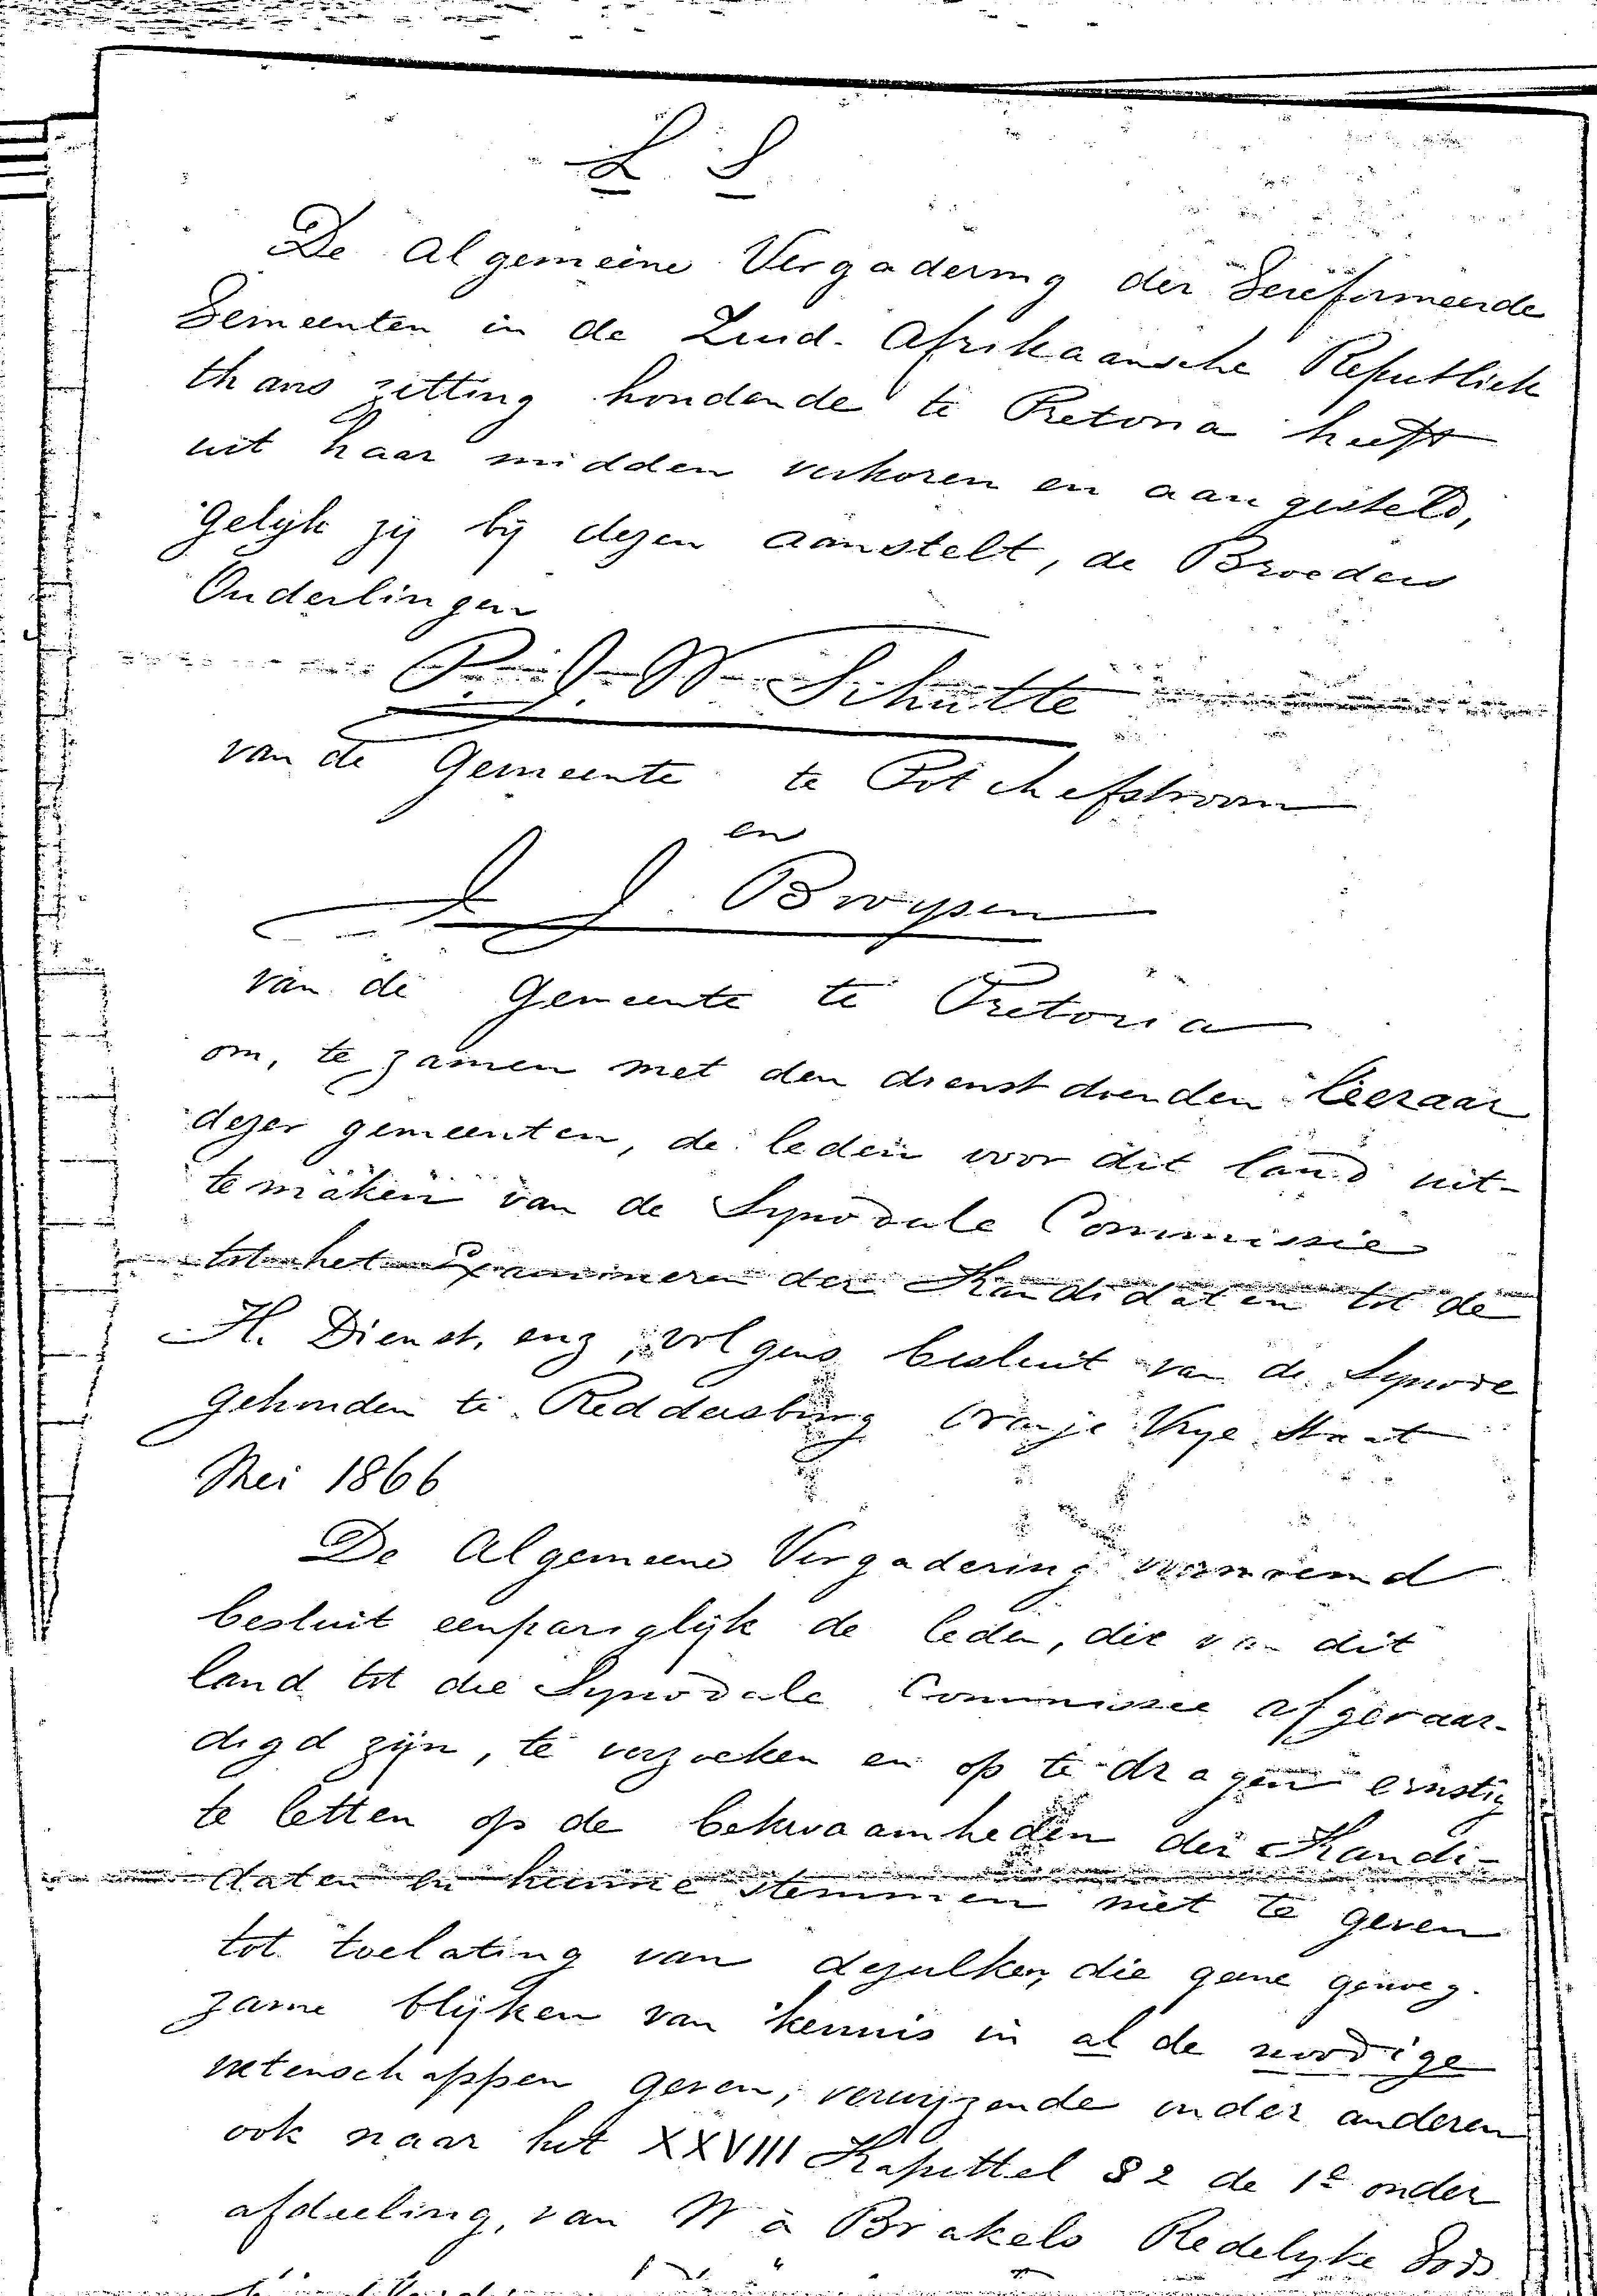 L. S.
De Algemeene Vergadering der Gereformeerde
Gemeenten in de Zuid-Afrikaansche Republiek
thans zitting houdende te Pretoria heeft
uit haar midden verkoren en aangesteld,
Gelijk zij bij dezen aanstelt, de Broeders
Ouderlingen
P. J. W. Schutte
van de Gemeente te Potchefstroom
en
J. J. Bruysen
van de Gemeente te Pretoria
om, te zamen met den dienstdoenden leeraar
dezer gemeenten, de leden voor dit land uit-
temaken van de Synodale Commissie
tot het Examineren der Kandidaten tot de
H. Dienst, enz, volgens besluit van de Synode
Gehouden te Reddersburg Oranje Vrye Staat
Mei 1866
De Algemeene Vergadering vernoemd
besluit eenpariglijk de leden, die van dit
land tot die Synodale Commissie afgevaar-
digd zijn, te verzoeken en op te dragen ernstig
te letten op de bekwaamheden der Kandi-
daten en hunne stemmen niet te geven
tot toelating van dezulken, die geene genoeg-
zame blijken van kennis in al de noodige
wetenschappen geven, verwijzende onder anderen
ook naar het XXVIII Kapittel § 2 de 1e onder
afdeeling, van W à Brakels Redelyke Gods